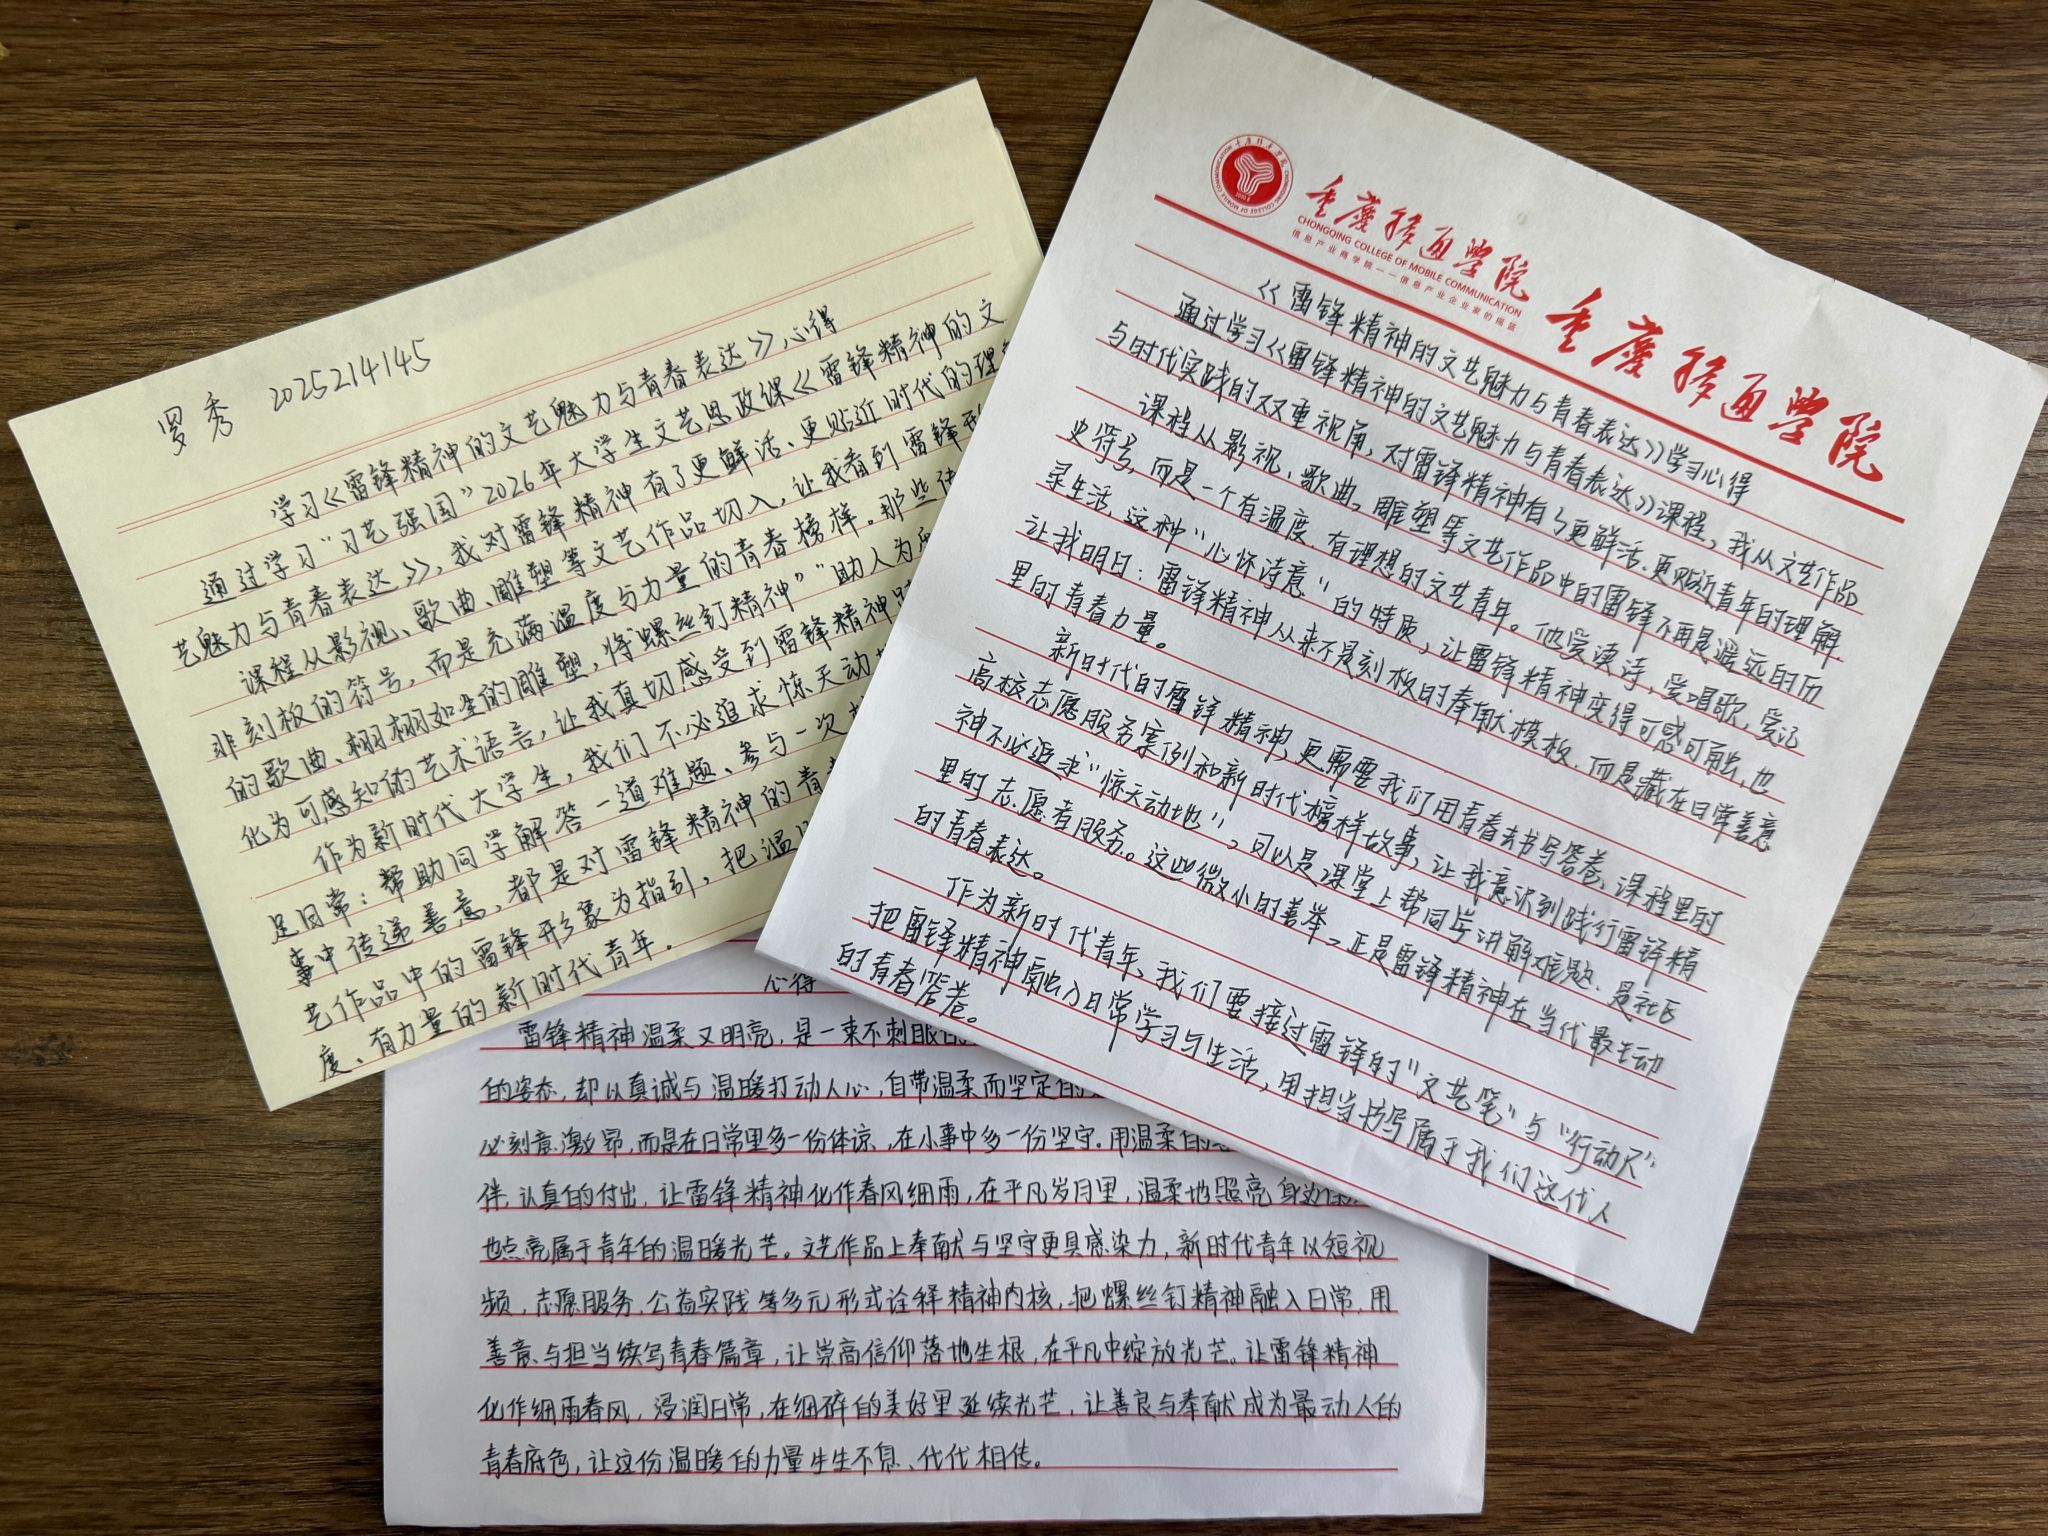 罗秀 2025214145
学习《雷锋精神的文艺魅力与青春表达》心得
通过学习“习艺强国”2026年大学生文艺思政课《雷锋精神的文
艺魅力与青春表达》，我对雷锋精神有了更鲜活、更贴近时代的理
课程从影视、歌曲、雕塑等文艺作品切入，让我看到雷锋形
非刻板的符号，而是充满温度与力量的青春榜样。那些
的歌曲、栩栩如生的雕塑，将“螺丝钉精神”“助人为
化为可感知的艺术语言，让我真切感受到雷锋精神
作为新时代大学生，我们不必追求惊天动
足日常：帮助同学解答一道难题、参与一次
事中传递善意，都是对雷锋精神的青
艺作品中的雷锋形象为指引，把温
度、有力量的新时代青年。
重庆移通学院
CHONGQING COLLEGE OF MOBILE COMMUNICATION
信息产业商学院——信息产业企业家的摇篮
重庆移通学院
《雷锋精神的文艺魅力与青春表达》学习心得
通过学习《雷锋精神的文艺魅力与青春表达》课程，我从文艺作品
与时代实践的双重视角，对雷锋精神有了更鲜活、更贴近青年的理解
课程从影视、歌曲、雕塑等文艺作品中的雷锋不再是遥远的历
史符号，而是一个有温度、有理想的文艺青年。他爱读诗，爱唱歌，爱记
录生活，这种“心怀诗意”的特质，让雷锋精神变得可感可触，也
让我明白：雷锋精神从来不是刻板的奉献模板，而是藏在日常善意
里的青春力量。
新时代的雷锋精神，更需要我们用青春去书写答卷，课程里的
高校志愿服务案例和新时代榜样故事，让我意识到践行雷锋精
神不必追求“惊天动地”，可以是课堂上帮同学讲解难题，是社区
里的志愿者服务。这些微小的善举，正是雷锋精神在当代最生动
的青春表达。
作为新时代青年，我们要接过雷锋的“文艺笔”与“行动尺”
把雷锋精神融入日常学习与生活，用担当书写属于我们这代人
的青春答卷。
心得
雷锋精神温柔又明亮，是一束不刺眼
的姿态，却以真诚与温暖打动人心，自带温柔而坚定的
必刻意激昂，而是在日常里多一份体谅，在小事中多一份坚守。用温柔的
伴，认真的付出，让雷锋精神化作春风细雨，在平凡岁月里，温柔地照亮身边
也点亮属于青年的温暖光芒。文艺作品上奉献与坚守更具感染力，新时代青年以短视
频，志愿服务，公益实践等多元形式诠释精神内核，把螺丝钉精神融入日常，用
善意与担当续写青春篇章，让崇高信仰落地生根，在平凡中绽放光芒。让雷锋精神
化作细雨春风，浸润日常，在细碎的美好里延续光芒，让善良与奉献成为最动人的
青春底色，让这份温暖的力量生生不息、代代相传。